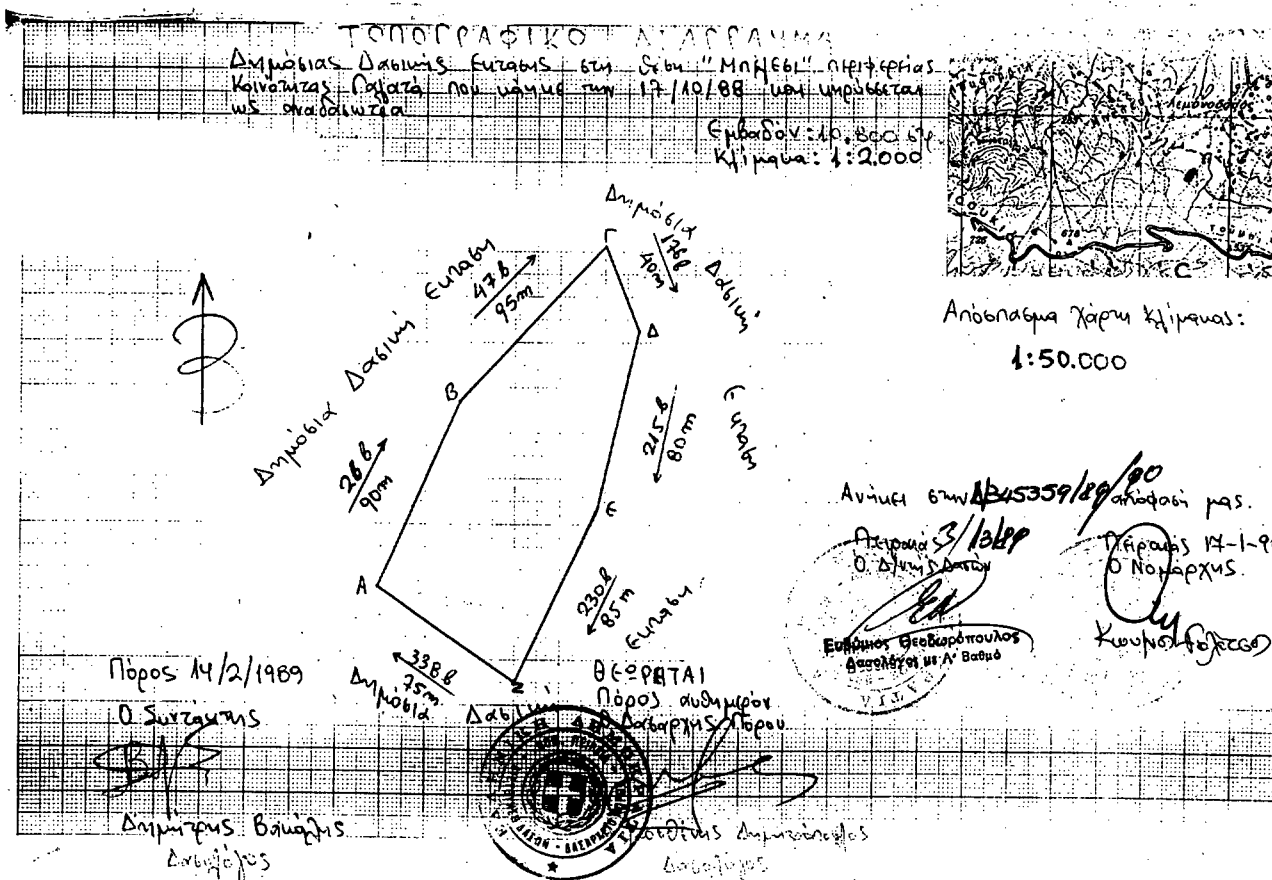 ΤΟΠΟΓΡΑΦΙΚΟ ΔΙΑΓΡΑΜΜΑ
Δημόσιας Δασικής Εκτασης στη θέση "Μπλεσι" περιφερείας
Κοινότητας Γαλατά που κάηκε την 17/10/88 και κηρύσσεται
ως αναδασωτέα
Εμβαδόν: 10.800 στρ.
Κλίμακα: 1:2.000
Λεμονοδάσος
725
678
Απόσπασμα Χάρτη Κλίμακας:
1:50.000
Δημόσια Δασική Εκταση
Γ
176β
40m
47β
95m
Δ
Β
Δημόσια Δασική Εκταση
215β
80m
26β
90m
Ε
Α
230β
85m
338β
75m
Ζ
Δημόσια Δασική Εκταση
Ανήκει στην 45359/89/90 απόφαση μας.
Πειραιά 3/13/89
Ο Δ/ντής Δασών
Ευθύμιος Θεοδωρόπουλος
Δασολόγος με Α' Βαθμό
Πειραιάς 17-1-9
Ο Νομάρχης
Πόρος 14/2/1989
Ο Συντάκτης
Δημήτρης Βακάλης
Δασολόγος
ΘΕΩΡΑΤΑΙ
Πόρος αυθημερόν
Ο Δασάρχης Πόρου
Δημητρόπουλος
Δασολόγος